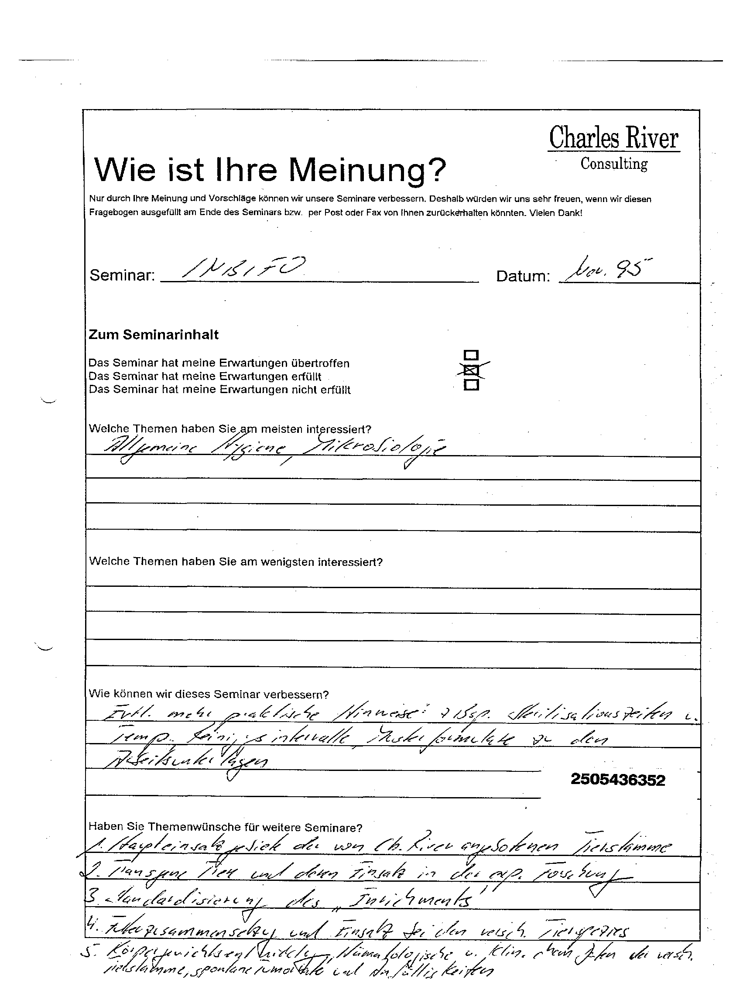 Charles River
Consulting
Wie ist Ihre Meinung?
Nur durch Ihre Meinung und Vorschläge können wir unsere Seminare verbessern. Deshalb würden wir uns sehr freuen, wenn wir diesen
Fragebogen ausgefüllt am Ende des Seminars bzw. per Post oder Fax von Ihnen zurückerhalten könnten. Vielen Dank!
Seminar: INBIFO Datum: Nov. 95
Zum Seminarinhalt
Das Seminar hat meine Erwartungen übertroffen
Das Seminar hat meine Erwartungen erfüllt
Das Seminar hat meine Erwartungen nicht erfüllt
Welche Themen haben Sie am meisten interessiert?
Allgemeine Hygiene, Mikrobiologie
Welche Themen haben Sie am wenigsten interessiert?
Wie können wir dieses Seminar verbessern?
Evtl. mehr praktische Hinweise: z.Bsp. Sterilisationszeiten u.
Temp. Reinigsintervalle, Musterformulare zu den
Arbeitsunterlagen
2505436352
Haben Sie Themenwünsche für weitere Seminare?
1. Haupteinsatzgebiete der von Ch. River angebotenen Tierstämme
2. Transgene Tiere und deren Einsatz in der exp. Forschung
3. Standardisierung des „Enrichments"
4. Futterzusammensetzg und Einsatz bei den versch. Tierspezies
5. Körpergewichtsentwicklg, Hämatologische u. klin. chem. Daten der versch.
Tierstämme, spontane Tumorrate und Anfälligkeiten